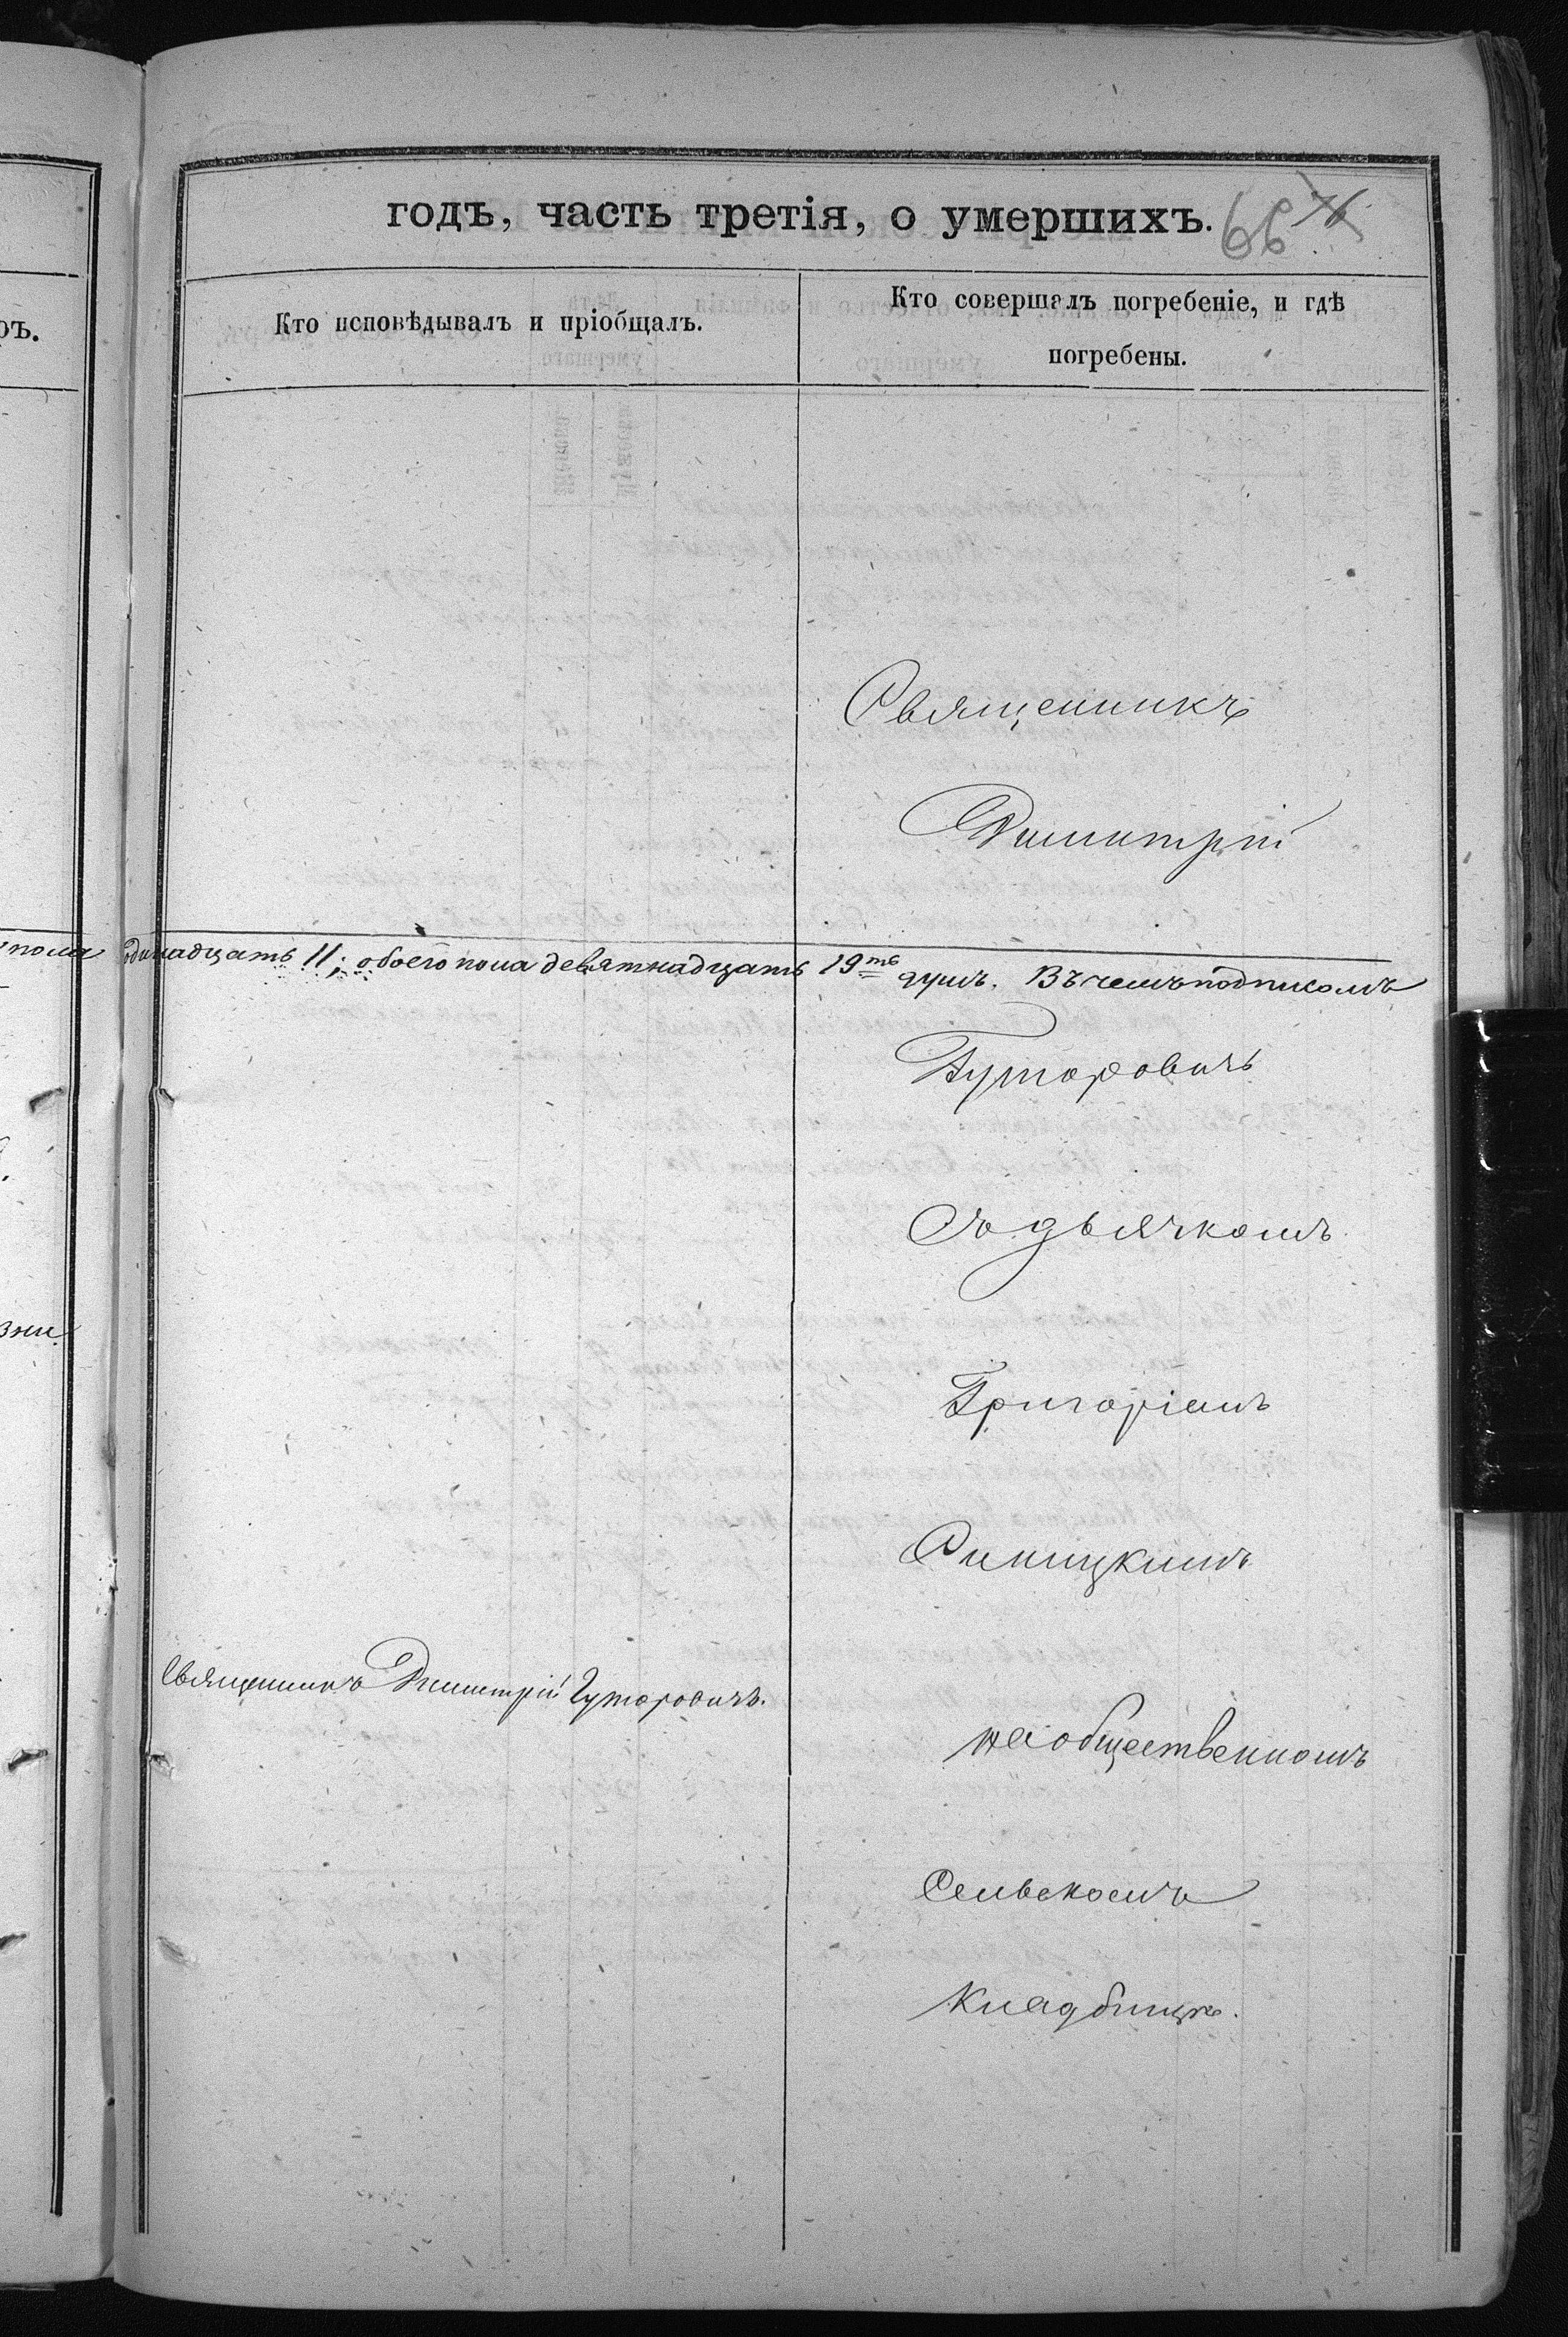 годъ, часть третія, о умершихъ. 66
Кто исповѣдывалъ и пріобщалъ.
Кто совершалъ погребеніе, и гдѣ
погребены.
ръ.
Священникъ
Димитрій
пола одинадцать 11; обоего пола девятнадцать 19ть душъ. Въ чемъ подписомъ
Гуторовичъ
Съ дьячкомъ
Григоріемъ
Синицкимъ
Священникъ Димитрій Гуторовичъ.
на общественномъ
Сельскомъ
Кладбищѣ.